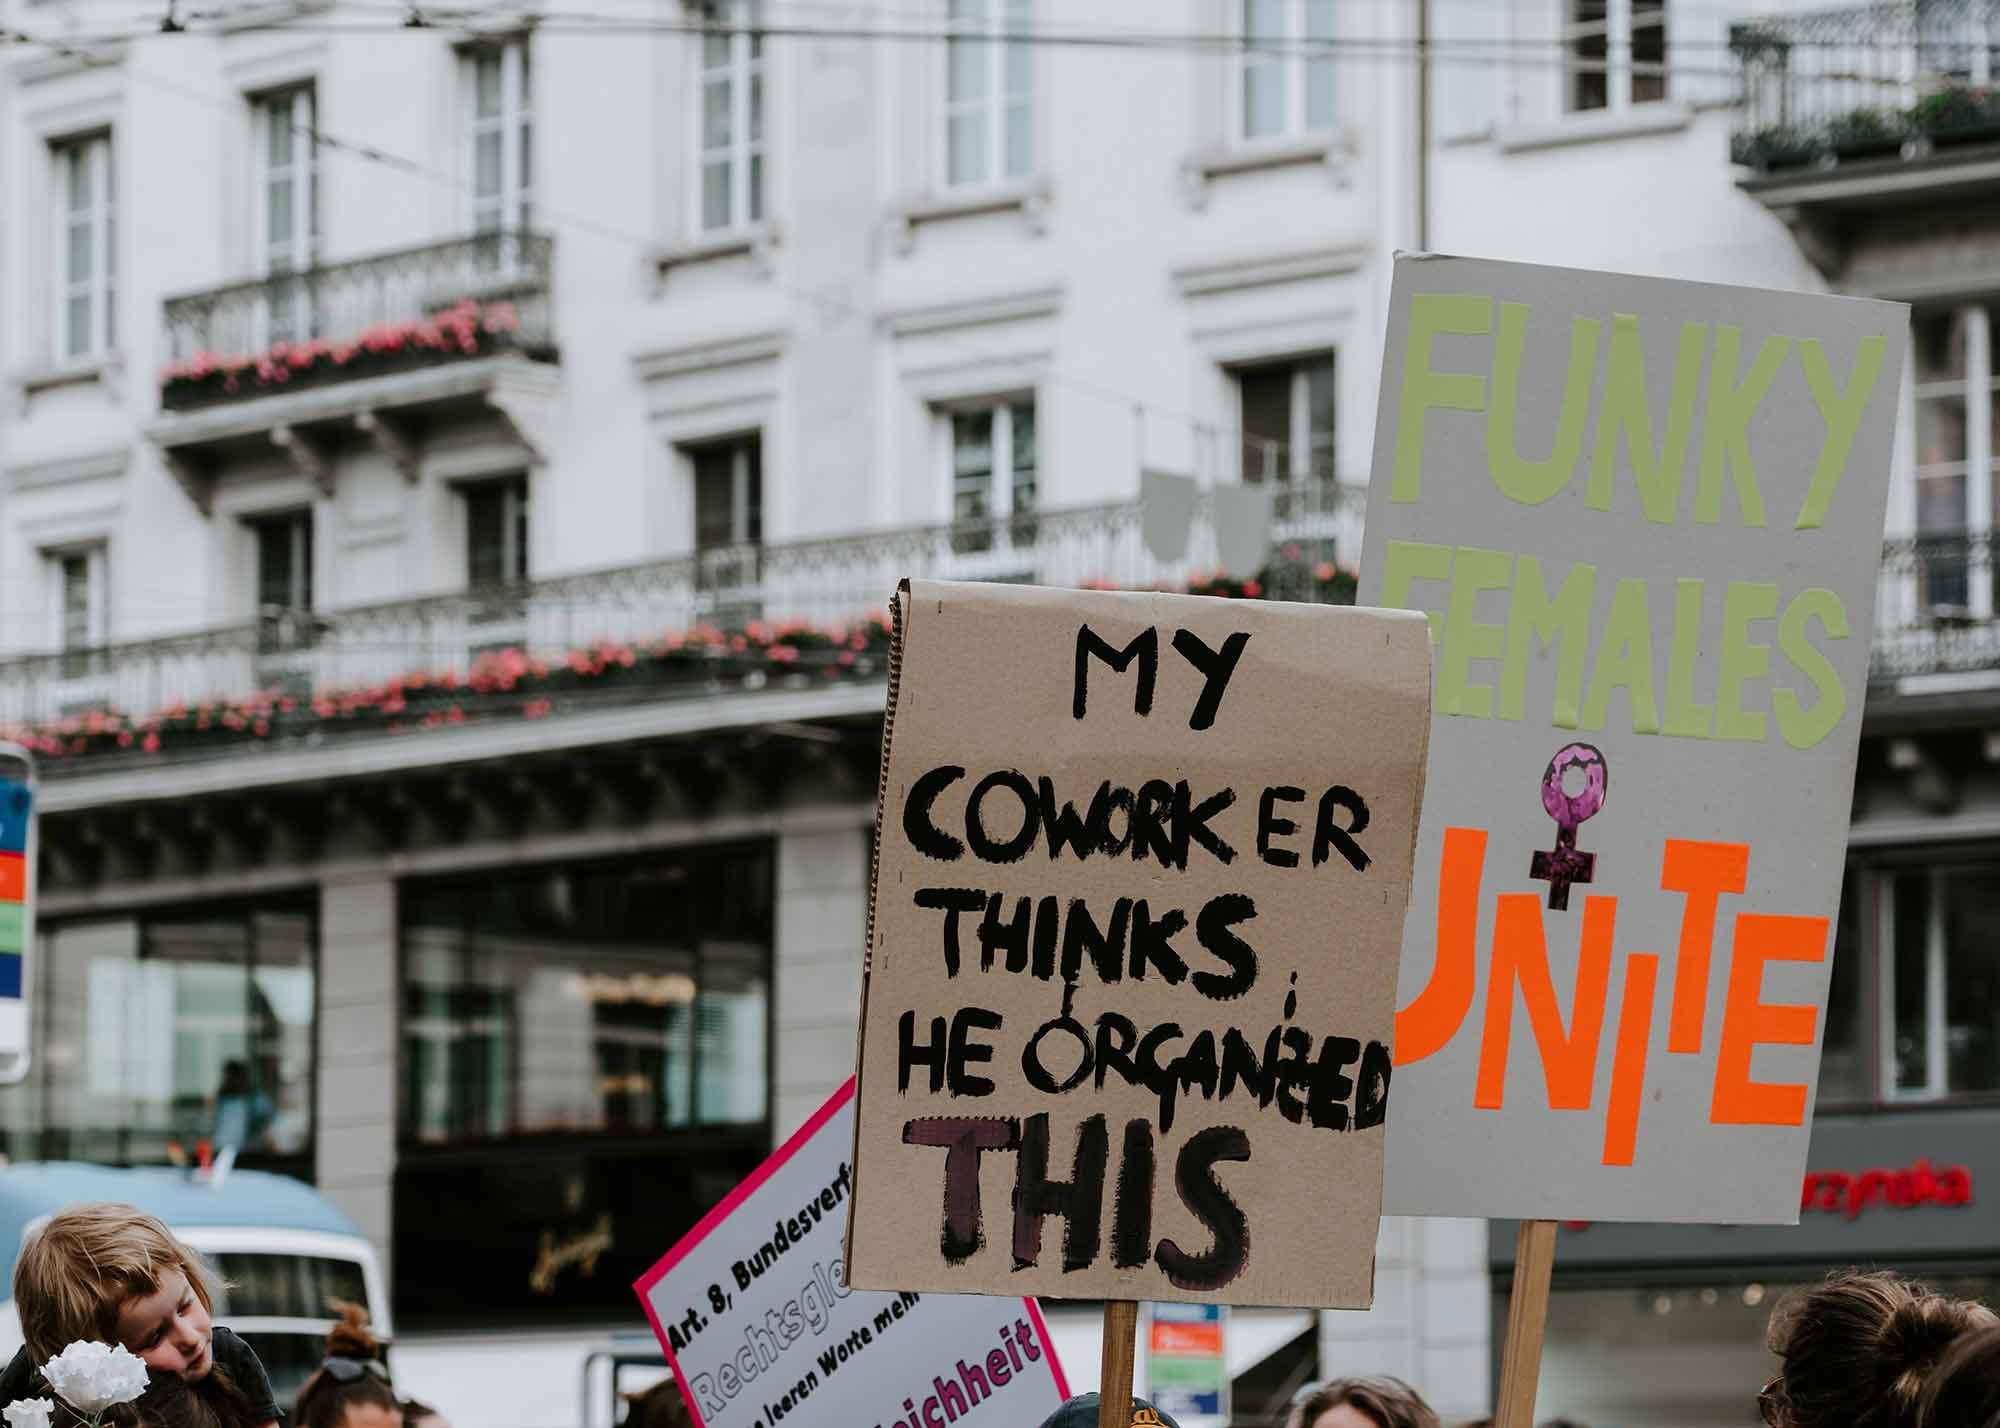 MY
COWORKER
THINKS
HE ORGANISED
THIS
FUNKY
FEMALES
UNITE
Art. 8, Bundesverf
Rechtsgle
leeren Worte mehr
eichheit